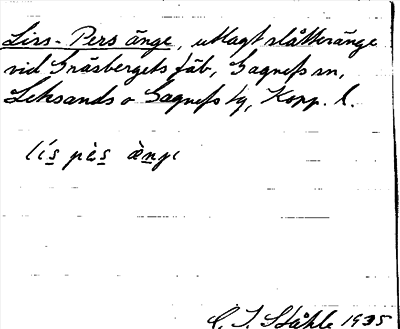 Liss-Pers änge, utlagt slåtteränge
vid Gräsbergets fäb, Gagnefs sn,
Leksands o Gagnefs tg, Kopp. l.
lís pès ànge
C. I. Ståhle 1935